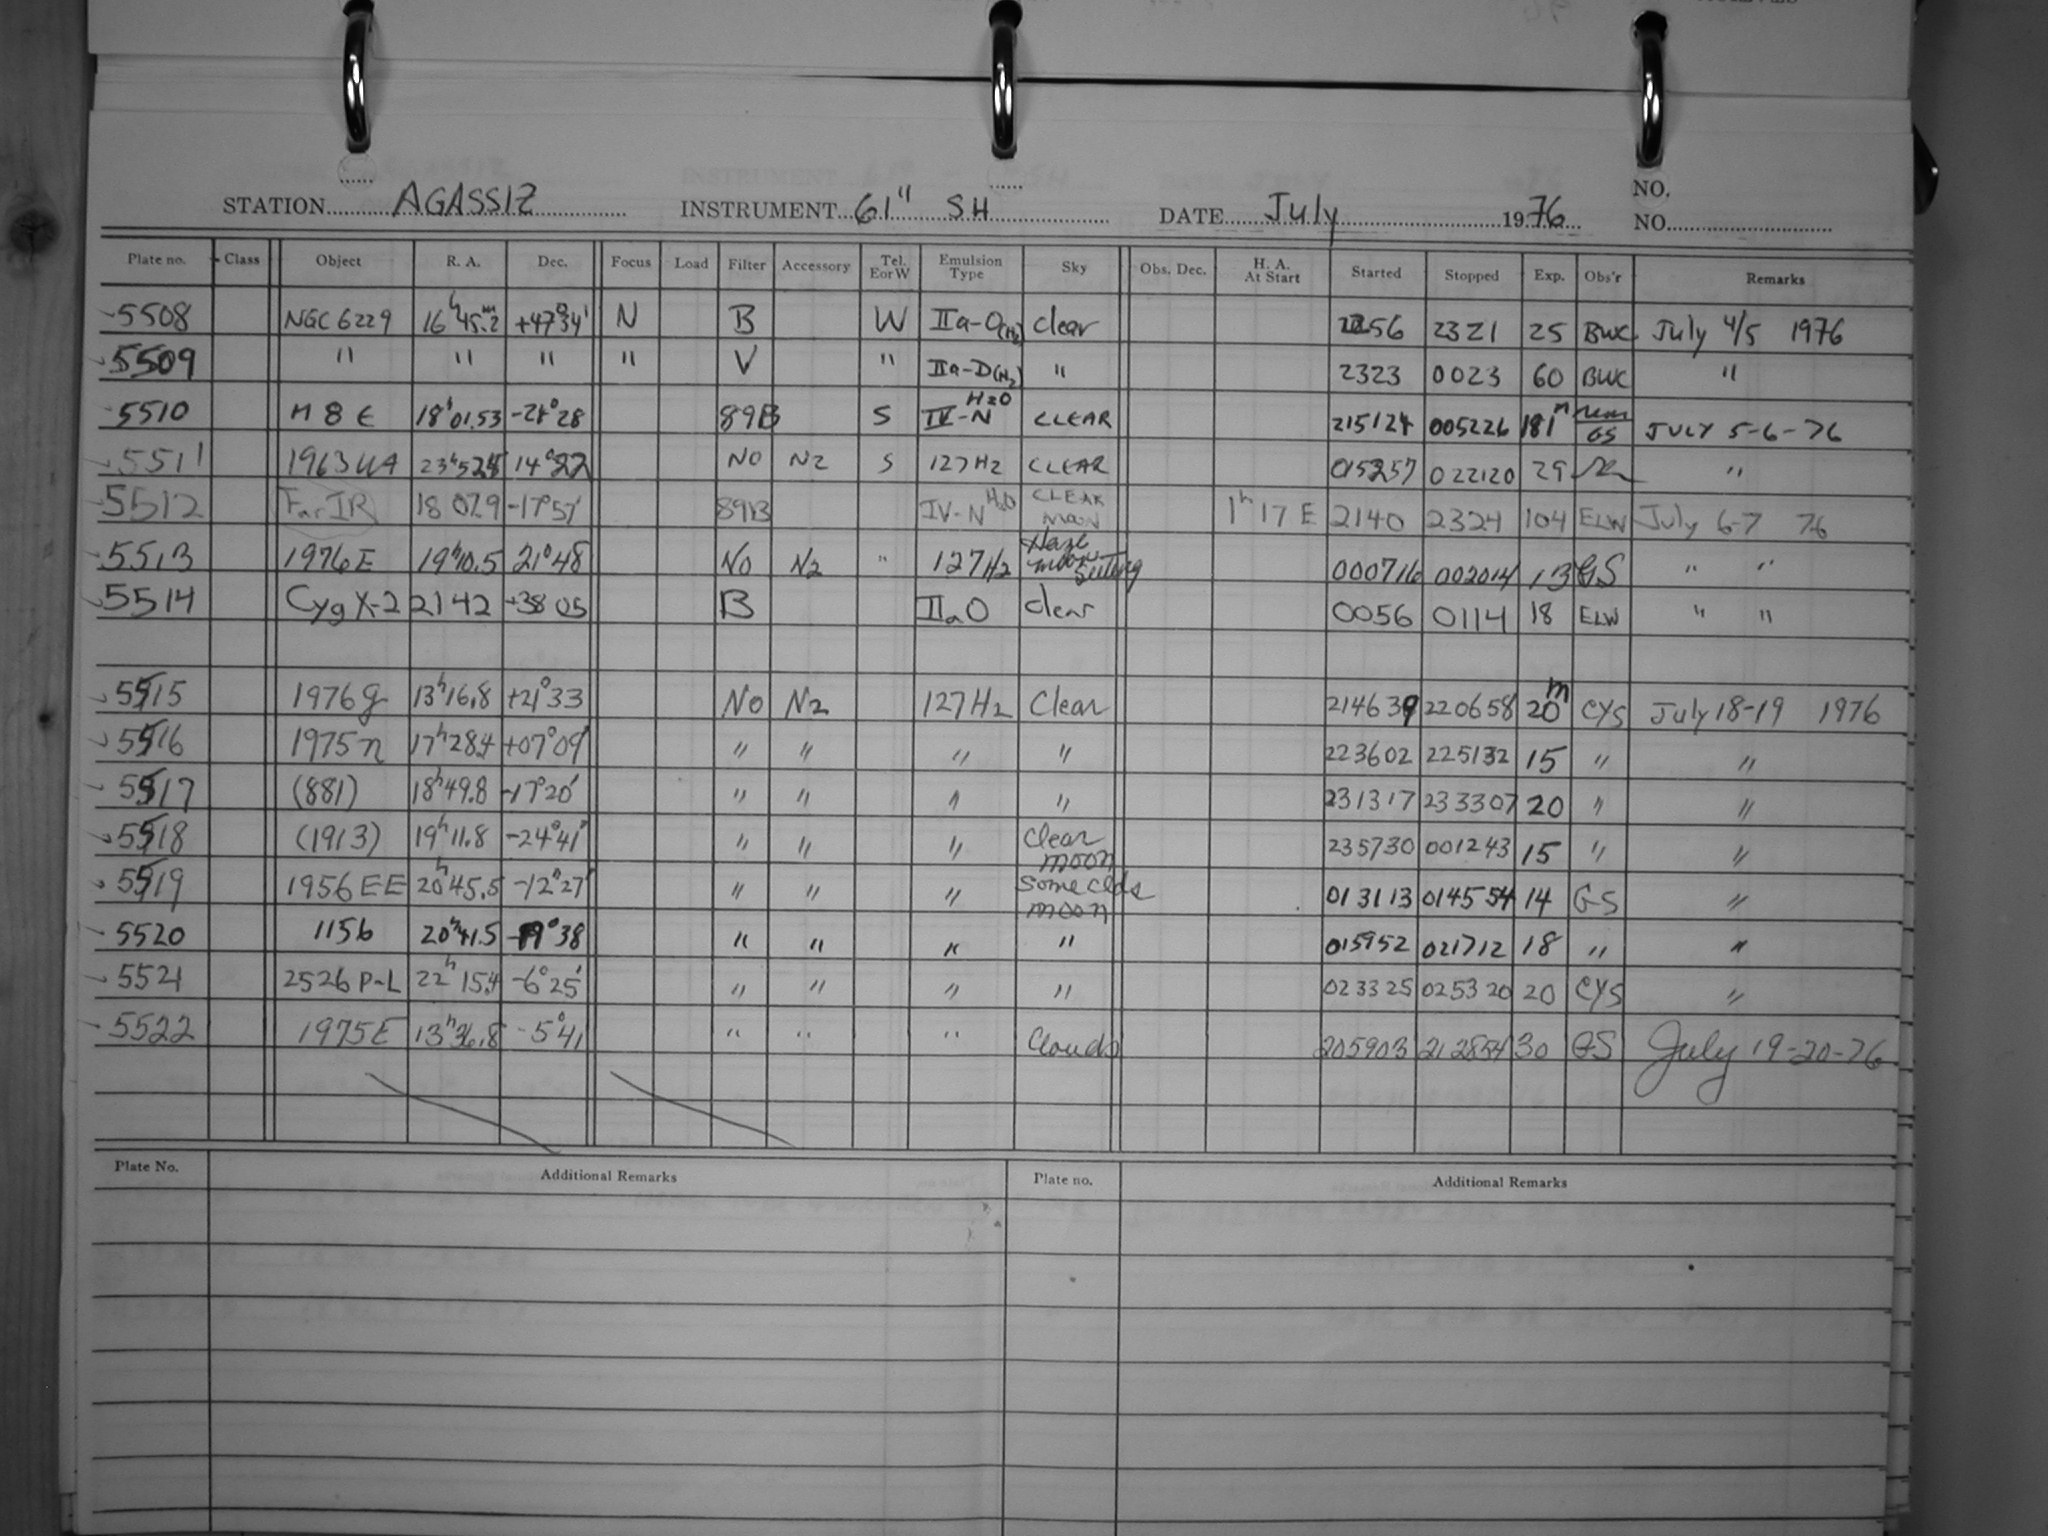 STATION AGASSIZ INSTRUMENT 61" SH DATE July 1976 NO.
NO.
Plate no. Class Object R. A. Dec. Focus Load Filter Accessory Tel. E or W Emulsion Type Sky Obs. Dec. H. A. At Start Started Stopped Exp. Obs'r Remarks
5508 NGC 6229 16h 45.m2 +47°34' N B W IIa-O(H2) clear 2256 2321 25 BWC July 4/5 1976
5509 " " " " V " IIa-D(H2) " 2323 0023 60 BWC "
5510 M 8 E 18h01.53 -24°28 89B S IV-N H2O CLEAR 215124 005226 181m GS JULY 5-6-76
5511 1963 UA 23h52.5 14°22 NO N2 S 127H2 CLEAR 015257 022120 29 "
5512 Far IR 18 07.9 -17°51' 89B IV-N H2O CLEAR MOON 1h 17 E 2140 2324 104 ELW July 6-7 76
5513 1976 E 19h10.5 21°48 NO N2 " 127H2 Haze moon setting 000716 002014 13 GS " "
5514 Cyg X-2 2142 +38 05 B IIaO clear 0056 0114 18 ELW " "
5515 1976g 13h16.8 +21°33 NO N2 127H2 Clear 214639 220658 20m CYS July 18-19 1976
5516 1975n 17h28.4 +07°09' " " " " 223602 225132 15 " "
5517 (881) 18h49.8 -17°20' " " " " 231317 233307 20 " "
5518 (1913) 19h11.8 -24°41' " " " Clear moon 235730 001243 15 " "
5519 1956 EE 20h45.5 -12°27' " " " some clds moon 013113 014554 14 GS "
5520 1156 20h41.5 -19°38 " " " " 015952 021712 18 " "
5521 2526 P-L 22h 15.4 -6°25' " " " " 023325 025320 20 CYS "
5522 1975E 13h36.8 -5°41 " " " Clouds 205903 212854 30 GS July 19-20-76
Plate No. Additional Remarks Plate no. Additional Remarks